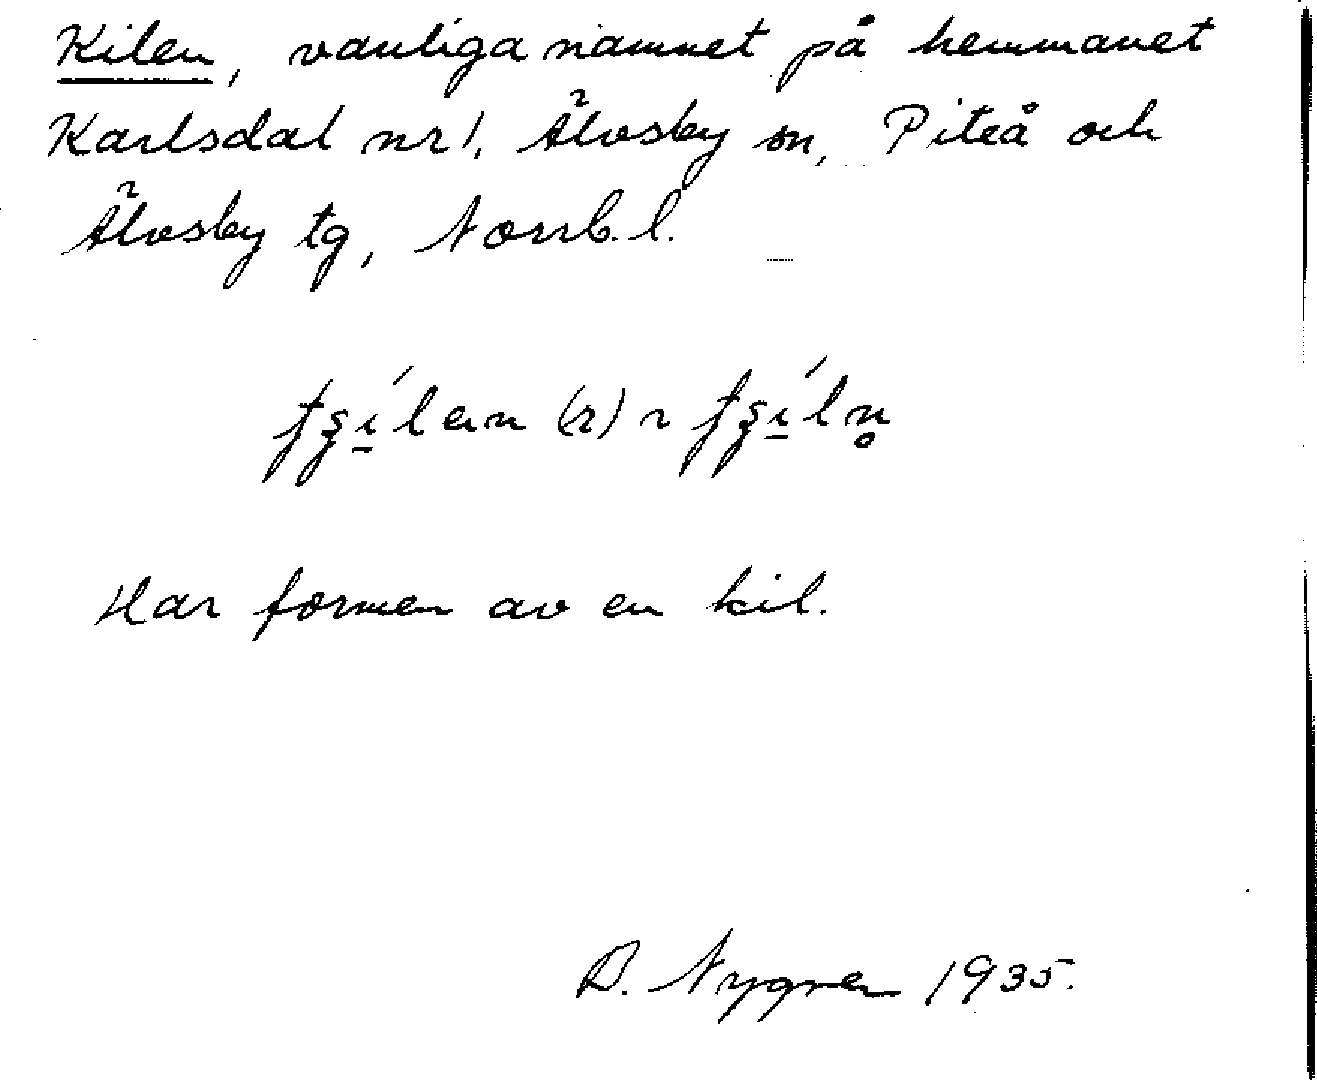 Kilen, vanliga namnet på hemmanet
Karlsdal nr 1, Älvsby sn, Piteå och
Älvsby tg, Norrb. l.
Har formen av en kil.
B. Nygren 1935.